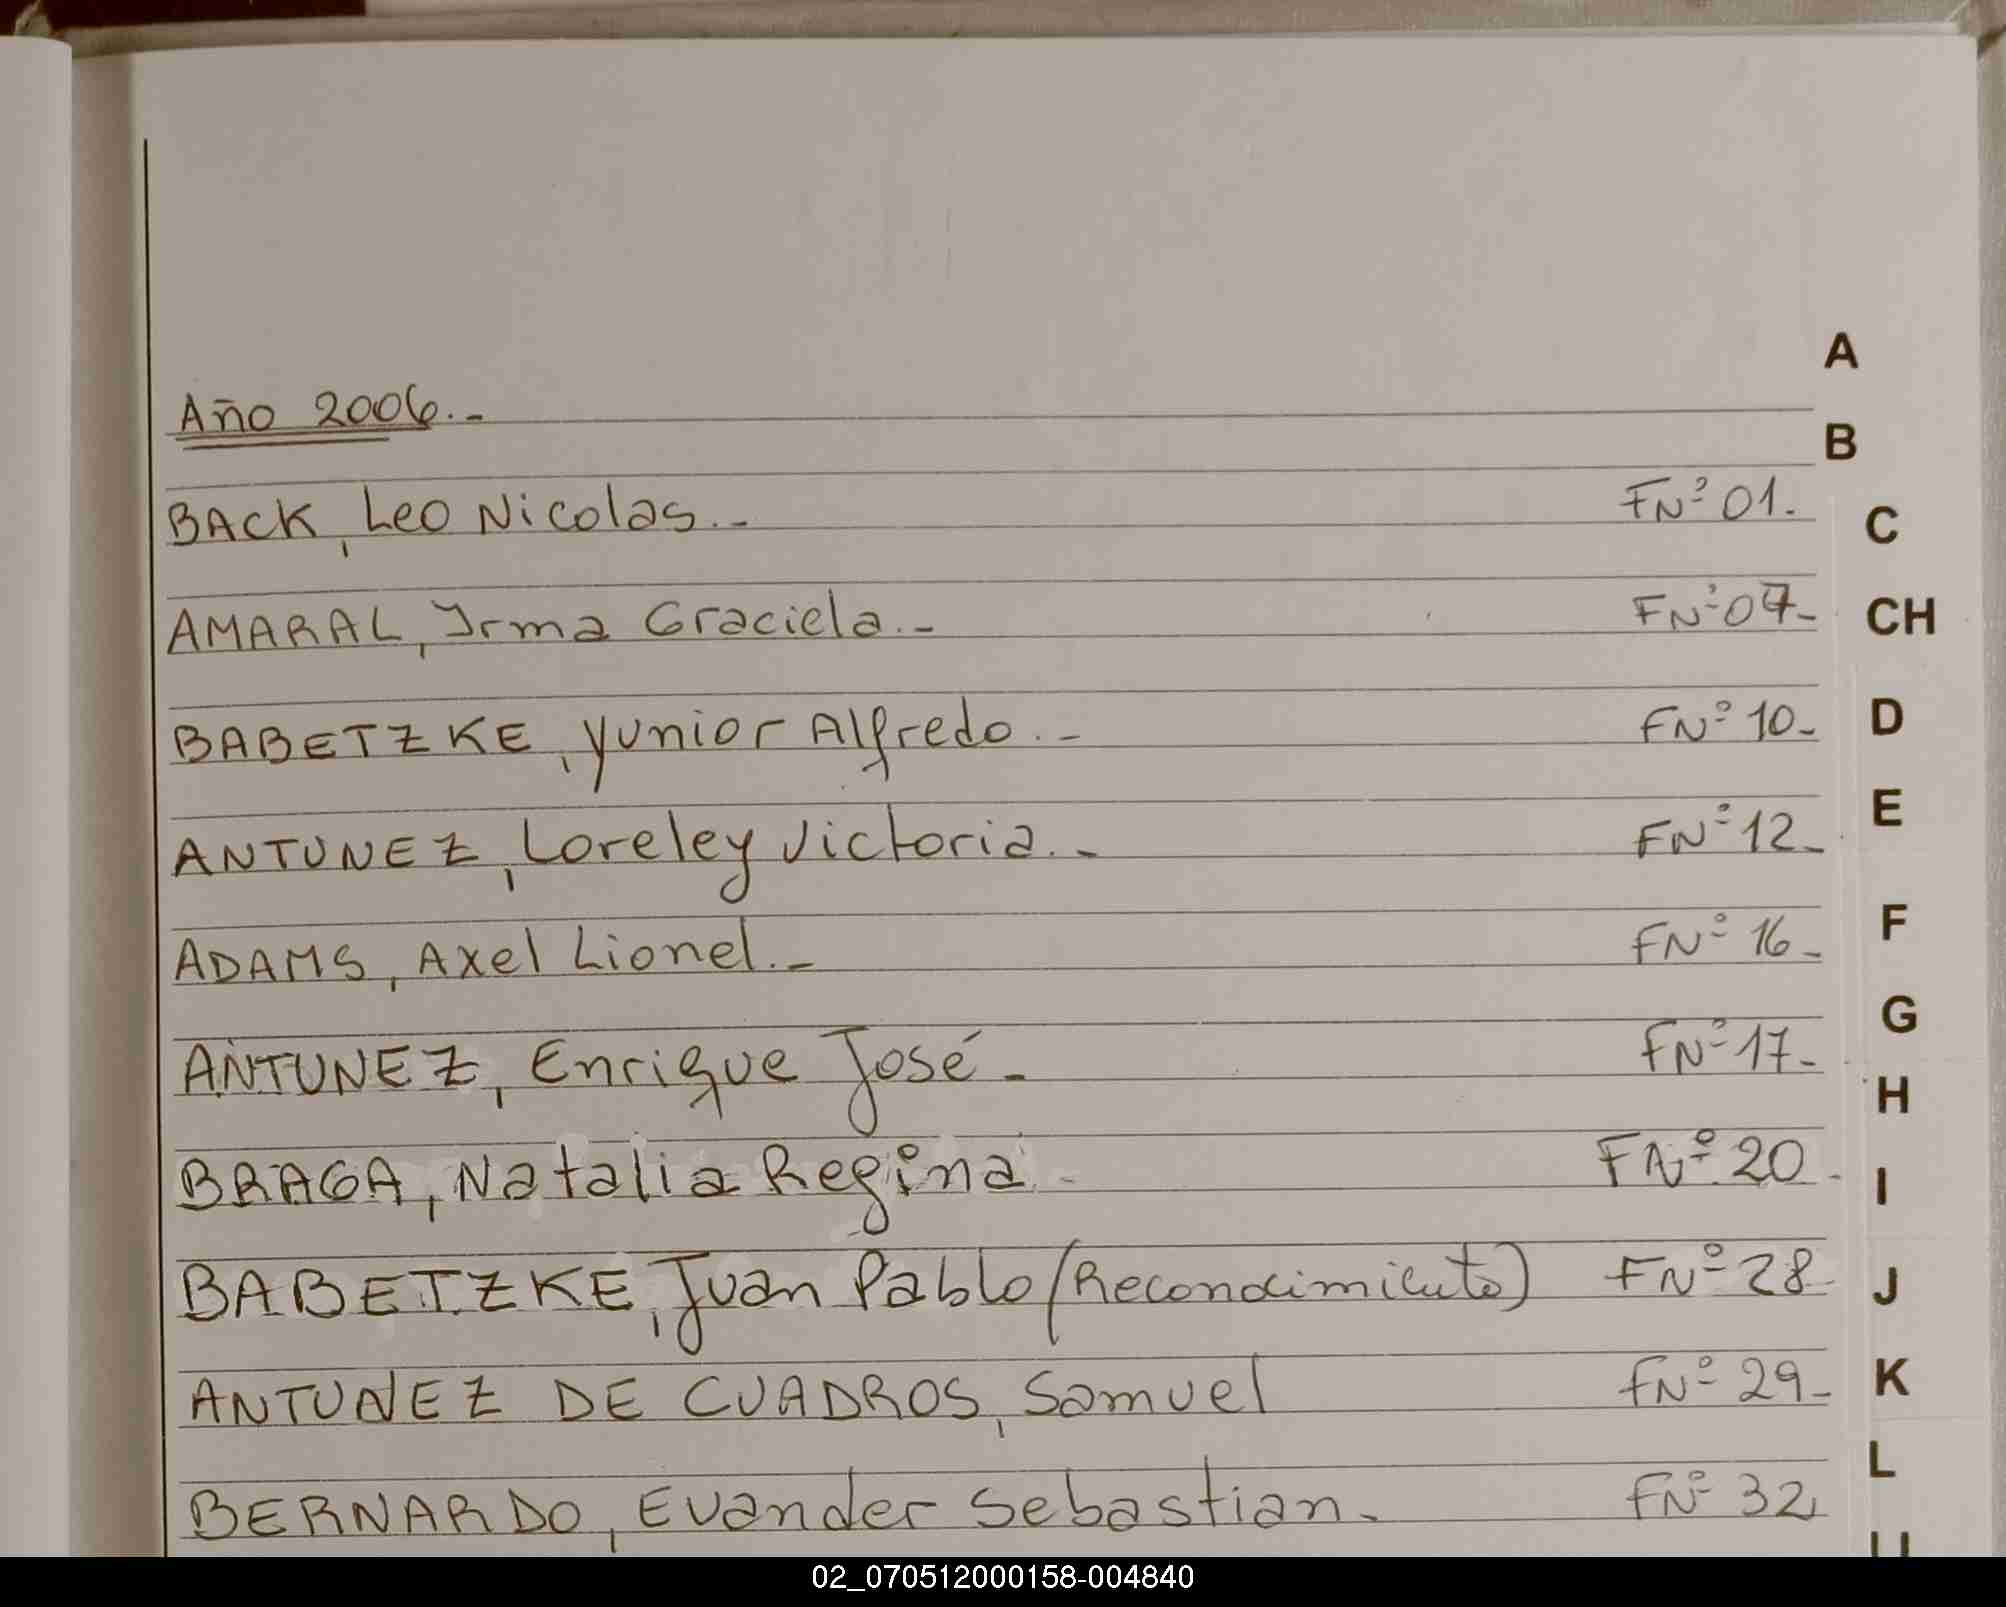 Año 2006.-
BACK, Leo Nicolas.- FNº 01.
AMARAL, Irma Graciela.- FNº 07-
BABETZKE, Yunior Alfredo.- FNº 10-
ANTUNEZ, Loreley Victoria.- FNº 12-
ADAMS, Axel Lionel.- FNº 16-
ANTUNEZ, Enrique José- FNº 17-
BRAGA, Natalia Regina- FNº 20-
BABETZKE, Juan Pablo (Reconocimiento) FNº 28-
ANTUNEZ DE CUADROS, Samuel FNº 29-
BERNARDO, Evander Sebastian- FNº 32
A
B
C
CH
D
E
F
G
H
I
J
K
L
02_070512000158-004840